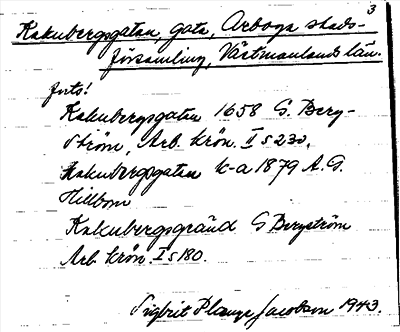 3
Kakubergsgatan, gata, Arboga stads-
församling, Västmanlands län.
forts!
Kakubergsgatan 1658 G. Berg-
ström, Arb. krön. II s 230,
Kakubergsgatan k-a 1879 A. G.
Hillbom
Kakubergsgränd G Bergström
Arb krön. I s 180.
Sigbrit Plange Jacobson 1943.